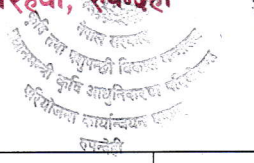 नेपाल सरकार
कृषि तथा पशुपन्छी विकास मन्त्रालय
प्रधानमन्त्री कृषि आधुनिकीकरण परियोजना
परियोजना कार्यान्वयन एकाई
रुपन्देही